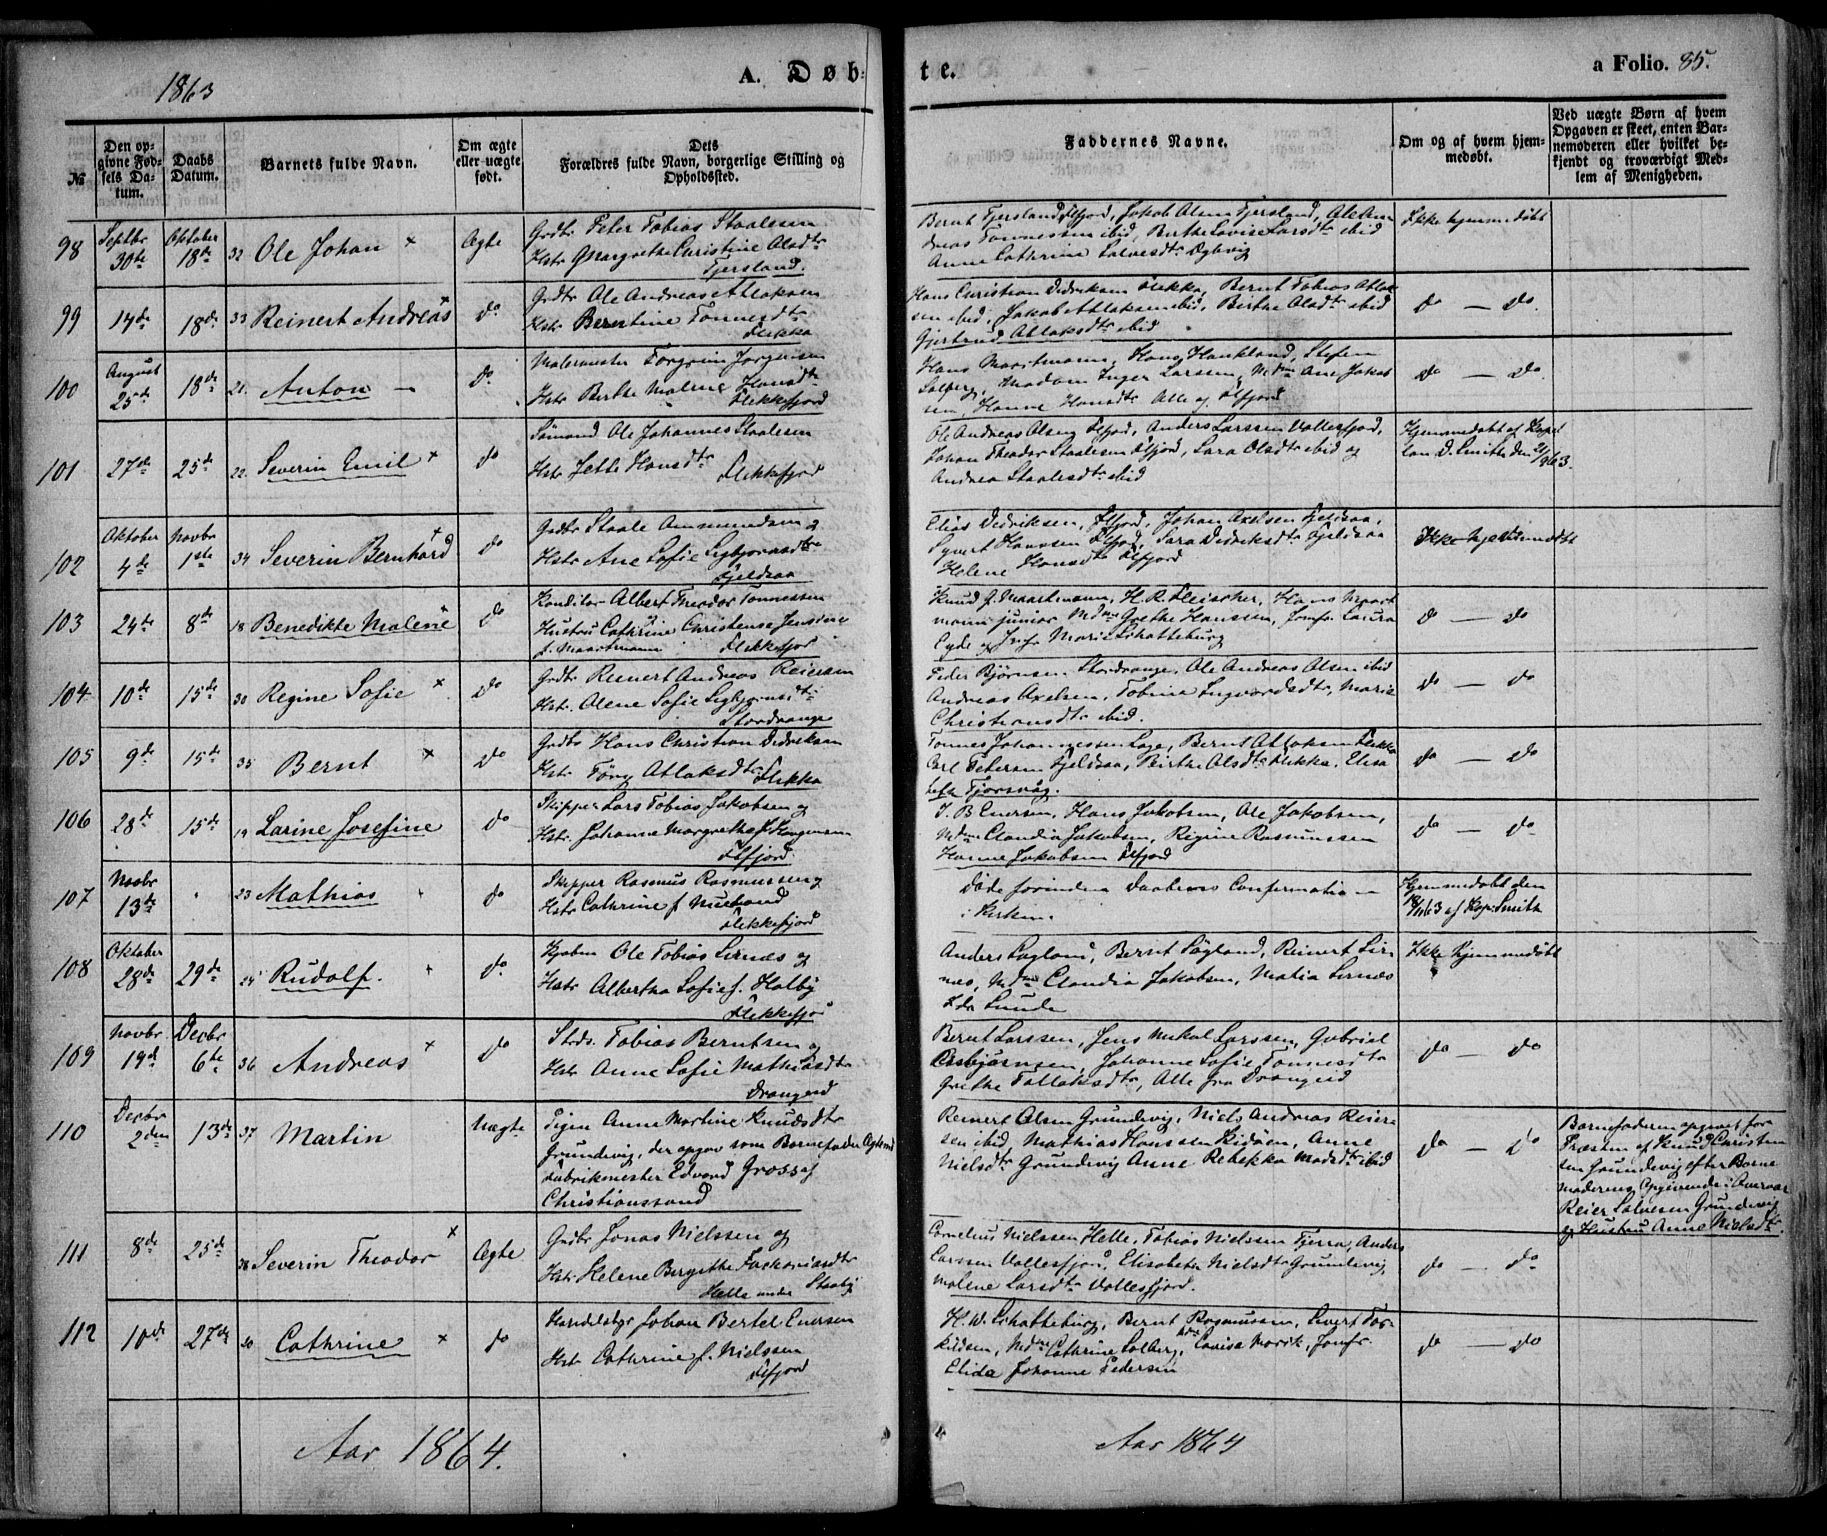 1863
A. Døb-
te.
a Folio. 85.
№
Den op-
givne Fød-
sels Da-
tum.
Daabs
Datum.
Barnets fulde Navn.
Om ægte
eller uægte
født.
Dets
Forældres fulde Navn, borgerlige Stilling og
Opholdssted.
Faddernes Navne.
Om og af hvem hjem-
medøbt.
Ved uægte Børn af hvem
Opgaven er skeet, enten Bar-
nemoderen eller hvilket be-
kjendt og troværdigt Med-
lem af Menigheden.
98
Septbr
30te
Oktober
18de
32 Ole Johan ×
Ægte
Grdbr Peter Tobias Staalesen
Hstr Margrethe Christine Olsdtr
Fjersland.
Bernt Fjersland, Flfjord, Jakob Olsen Fjersland, Ole An-
dreas Tønnessen ibid, Birthe Lovise Larsdtr ibid
Anne Cathrine Salvesdtr
Ikke hjemmedøbt
99
14de
18de
33 Reinert Andreas ×
do
Grdbr Ole Andreas Atlaksen
Hstr Berentine Tønnesdtr
Flikka
Hans Christian Didriksen Flikka, Bernt Tobias Atlak-
sen ibid, Jakob Atlaksen ibid, Birthe Olsdtr ibid
Gjertrud Atlaksdtr ibid
do — do.
100
August
25de
18de
21. Anton —
do
Malermester Torgrim Jørgensen
Hstr Birthe Malene Hansdtr
Flekkefjord
Hans Maartmann, Hans Haukland, Stefen
Solberg, Madam Inger Larssen, Mdm Ane Jakob
sen, Hanne Hansdtr Alle og Flfjord
do — do.
101
27de
25de
22. Severin Emil ×
do
Sømand Ole Johannes Staalesen
Hstr Jette Hansdtr Flekkefjord
Ole Andreas Olsen Flfjord, Anders Larssen Vollesfjord,
Johan Theodor Staalesen Flfjord, Sara Olsdtr ibid og
Andrea Staalesdtr ibid
Hjemmedøbt af Kapel
lan D. Smith den 2/9 63.
102
Oktober
4de
Novbr
1ste
34 Severin Bernhard ×
do
Grdbr Staale Ammundsen og
Hstr Ane Sofie Sigbjørnsdtr
Fjeldsaa
Elias Didriksen, Flfjord, Johan Axelsen Fjeldsaa,
Syvert Hanssen Flfjord, Sara Didriksdtr Fjeldsaa
Helene Hansdtr Flfjord
Ikke hjemmedøbt
103
24te
8de
18 Benedikte Malene
do
Konditor Albert Theodor Tønnessen
Hustru Cathrine Christense Jensine
f. Maartmann Flekkefjor
Knud J. Maartmann, H. R. Fleischer, Hans Maart
mann junior Mdm Grethe Hanssen, Jomfr Laura
Eyde og Jmfr Marie Schatteburg
do — do
104
10de
15de
30 Regine Sofie ×
do
Grdbr Reinert Andreas Reiersen
Hstr. Olene Sofie Sigbjørnsdtr
Stordrange
Peder Bjørnsen Stordrange, Ole Andreas Olsen ibid
Andreas Axelsen, Tobine Ingvardsdtr, Marie
Christiansdtr ibid.
do — do
105
9de
15de
35 Bernt ×
do
Grdbr Hans Christian Didriksen
Hstr Tøry Atlaksdtr Flikka
Tønnes Johannessen Loge, Bernt Atlaksen Flikka
Carl Petersen Fjeldsaa, Birthe Olsdtr Flikka, Elisa
beth Tjorsvåg.
do — do
106
28de
15de
19 Larine Josefine
do
Skipper Lars Tobias Jakobsen og
Hstr. Johanne Margrethe f. Haagensen
Flfjord
J. B Enersen, Hans Jakobsen, Ole Jakobsen,
Mdm Claudia Jakobsen, Regine Rasmussen
Hanne Jakobsen Flfjord
do — do
107
Novbr
13de
"
23 Mathias
do
Skipper Rasmus Rasmussen og
Hstr Cathrine f.
Flekkefjord
Døde forinden Daabens Confirmation
i Kirken.
Hjemmedøbt den
18/11 63 af Kap. Smith
108
Oktober
28de
29de
24 Rudolf.
do.
Kjøbm Ole Tobias Sirnæs og
Hstr Albertha Sofie f. Halby
Flekkefjor
Anders Løgland, Bernt Løgland, Reinert Sir-
næs, Mdm Claudia Jakobsen, Matia Sirnæs
Ida Lunde
Ikke Hjemmedøbt
109
Novbr
19de
Decbr
6te
36 Andreas ×
do
Strds. Tobias Berntsen og
Hstr Anne Sofie Mathiasdtr
Drangeid
Bernt Larssen, Jens Mikal Larssen, Gabriel
Asbjørnsen, Johanne Sofie Tønnesdtr
Grethe Tollaksdtr, Alle fra Drangeid
do — do
110
Decbr
2den
13de
37 Martin
Uægte
Pigen Anne Martine Knudsdtr
Grundevig, der opgav som Barnefader Ugift
Fabrikmester Edvard Gross af
Christianssand
Reinert Olsen Grundevig, Niels Andreas Reier-
sen ibid, Mathias Hanssen Skidøen, Anne
Nielsdtr Grundevig Anne Rebekka Madsdtr ibid
do — do
Barnefaderen opgivet for
Præsten af Knud Christen
sen Grundevig efter Barne
moderens Opgivende i Overvær
Reier Salvesen Grundevig
og Hustru Anne Nielsdtr.
111
8de
25de
38 Severin Theodor ×
Ægte
Grdbr Jonas Nielssen og
Hstr Helene Birgithe Zachariasdtr
Helle under Stoeby
Cornelius Nielssen Helle, Tobias Nielssen Fjerra, Anders
Larssen Vollesfjord, Elisabeth Nielsdtr Grundevig,
Malene Larsdtr Vollesfjord.
do — do
112
10de
27de
20 Cathrine ×
do
Handelsbgr Johan Bertel Enersen
Hstr Cathrine f. Nielssen
Flfjord
H. W. Schatteburg, Bernt Rasmussen, Sivert Tor-
kildsen, Mdm Cathrine Solberg, Mdm Lovisa Marik, Jomfr
Elida Johanne Pedersen
do — do
Aar 1864.
Aar 1864